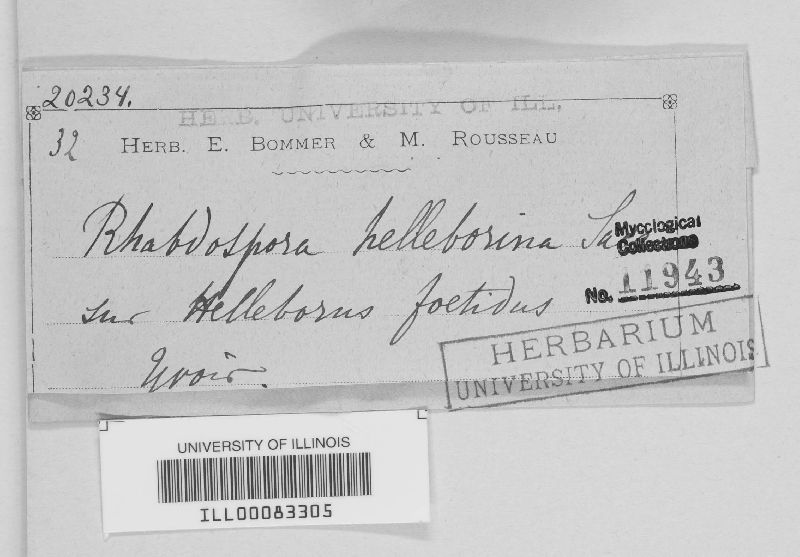 20234.
HERB. UNIVERSITY OF ILL.
32 HERB. E. BOMMER & M. ROUSSEAU
Rhabdospora helleborina
Mycological
Collections
sur Helleborus foetidus
No. 11943
Yvoir.
HERBARIUM
UNIVERSITY OF ILLINOIS
UNIVERSITY OF ILLINOIS
ILL00083305